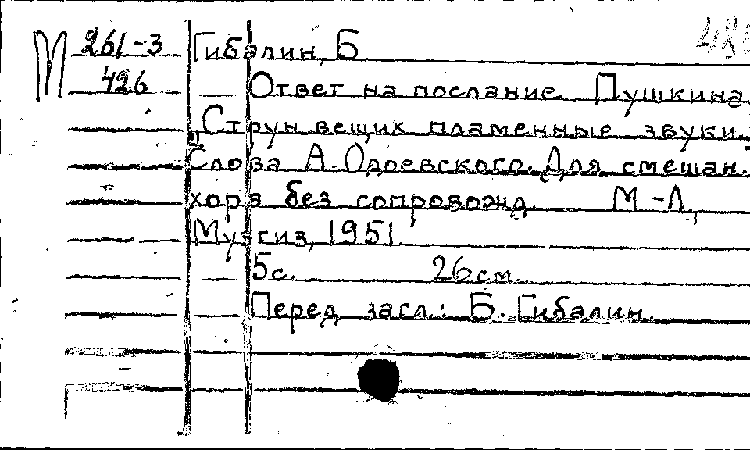 М 261-3 Гибалин, Б
426 Ответ на послание Пушкина
„Струн вещих пламенные звуки."
Слова А. Одоевского. Для смешан.
хора без сопровожд. М-Л,
Музгиз, 1951.
5с. 26см.
Перед засл.: Б. Гибалин.